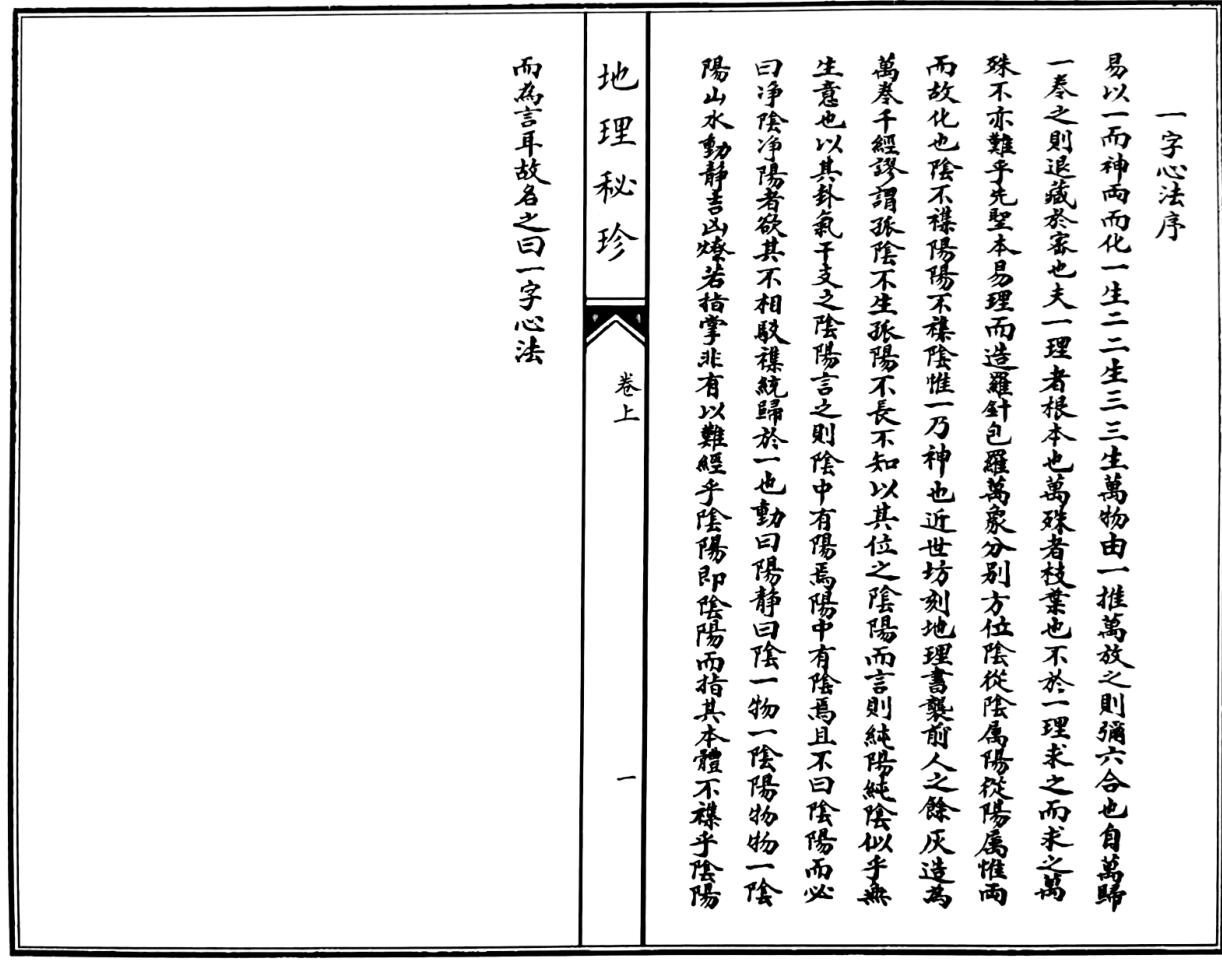 一字心法序
易以一而神兩而化一生二二生三三生萬物由一推萬放之則彌六合也自萬歸
一卷之則退藏於密也夫一理者根本也萬殊者枝葉也不於一理求之而求之萬
殊不亦難乎先聖本易理而造羅針包羅萬象分別方位陰從陰属陽從陽属惟兩
而故化也陰不襍陽陽不襍陰惟一乃神也近世坊刻地理書襲前人之餘灰造為
萬卷千經謬謂孤陰不生孤陽不長不知以其位之陰陽而言則純陽純陰似乎無
生意也以其卦氣干支之陰陽言之則陰中有陽焉陽中有陰焉且不曰陰陽而必
曰净陰净陽者欲其不相駁襍統歸於一也動曰陽静曰陰一物一陰陽物物一陰
陽山水動静吉凶燎若指掌非有以難經乎陰陽即陰陽而指其本體不襍乎陰陽
地理秘珍
卷上
一
而為言耳故名之曰一字心法